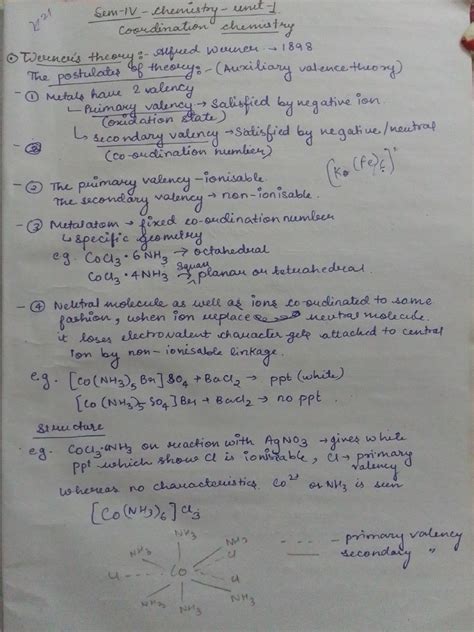 Sem-IV - Chemistry - unit-1
Coordination chemistry
Werner's theory:- Alfred Werner - 1898
The postulates of theory:- (Auxiliary valence theory)
- ① Metals have 2 valency
↳ Primary valency → Satisfied by negative ion
(oxidation state)
↳ secondary valency → Satisfied by negative/neutral
(co-ordination number)
- ② The primary valency - ionisable.
The secondary valency → non-ionisable.
- ③ Metal atom → fixed co-ordination number
↳ specific geometry
eg. CoCl3·6NH3 → octahedral
CoCl3·4NH3 → Square planar or tetrahedral
- ④ Neutral molecule as well as ions co-ordinated to same
fashion, when ion replace neutral molecule.
it loses electrovalent character gets attached to central
ion by non-ionisable linkage.
e.g. [Co(NH3)5Br]SO4 + BaCl2 → ppt (white)
[Co(NH3)5SO4]Br + BaCl2 → no ppt.
Structure
eg. on reaction with AgNO3 → gives white
ppt which show Cl is ionisable, Cl → primary
valency
whereas no characteristics. or NH3 is seen
[Co(NH3)6]Cl3
NH3
NH3 NH3
Cl
Cl Co Cl
NH3 NH3 NH3
--- primary valency
— secondary "